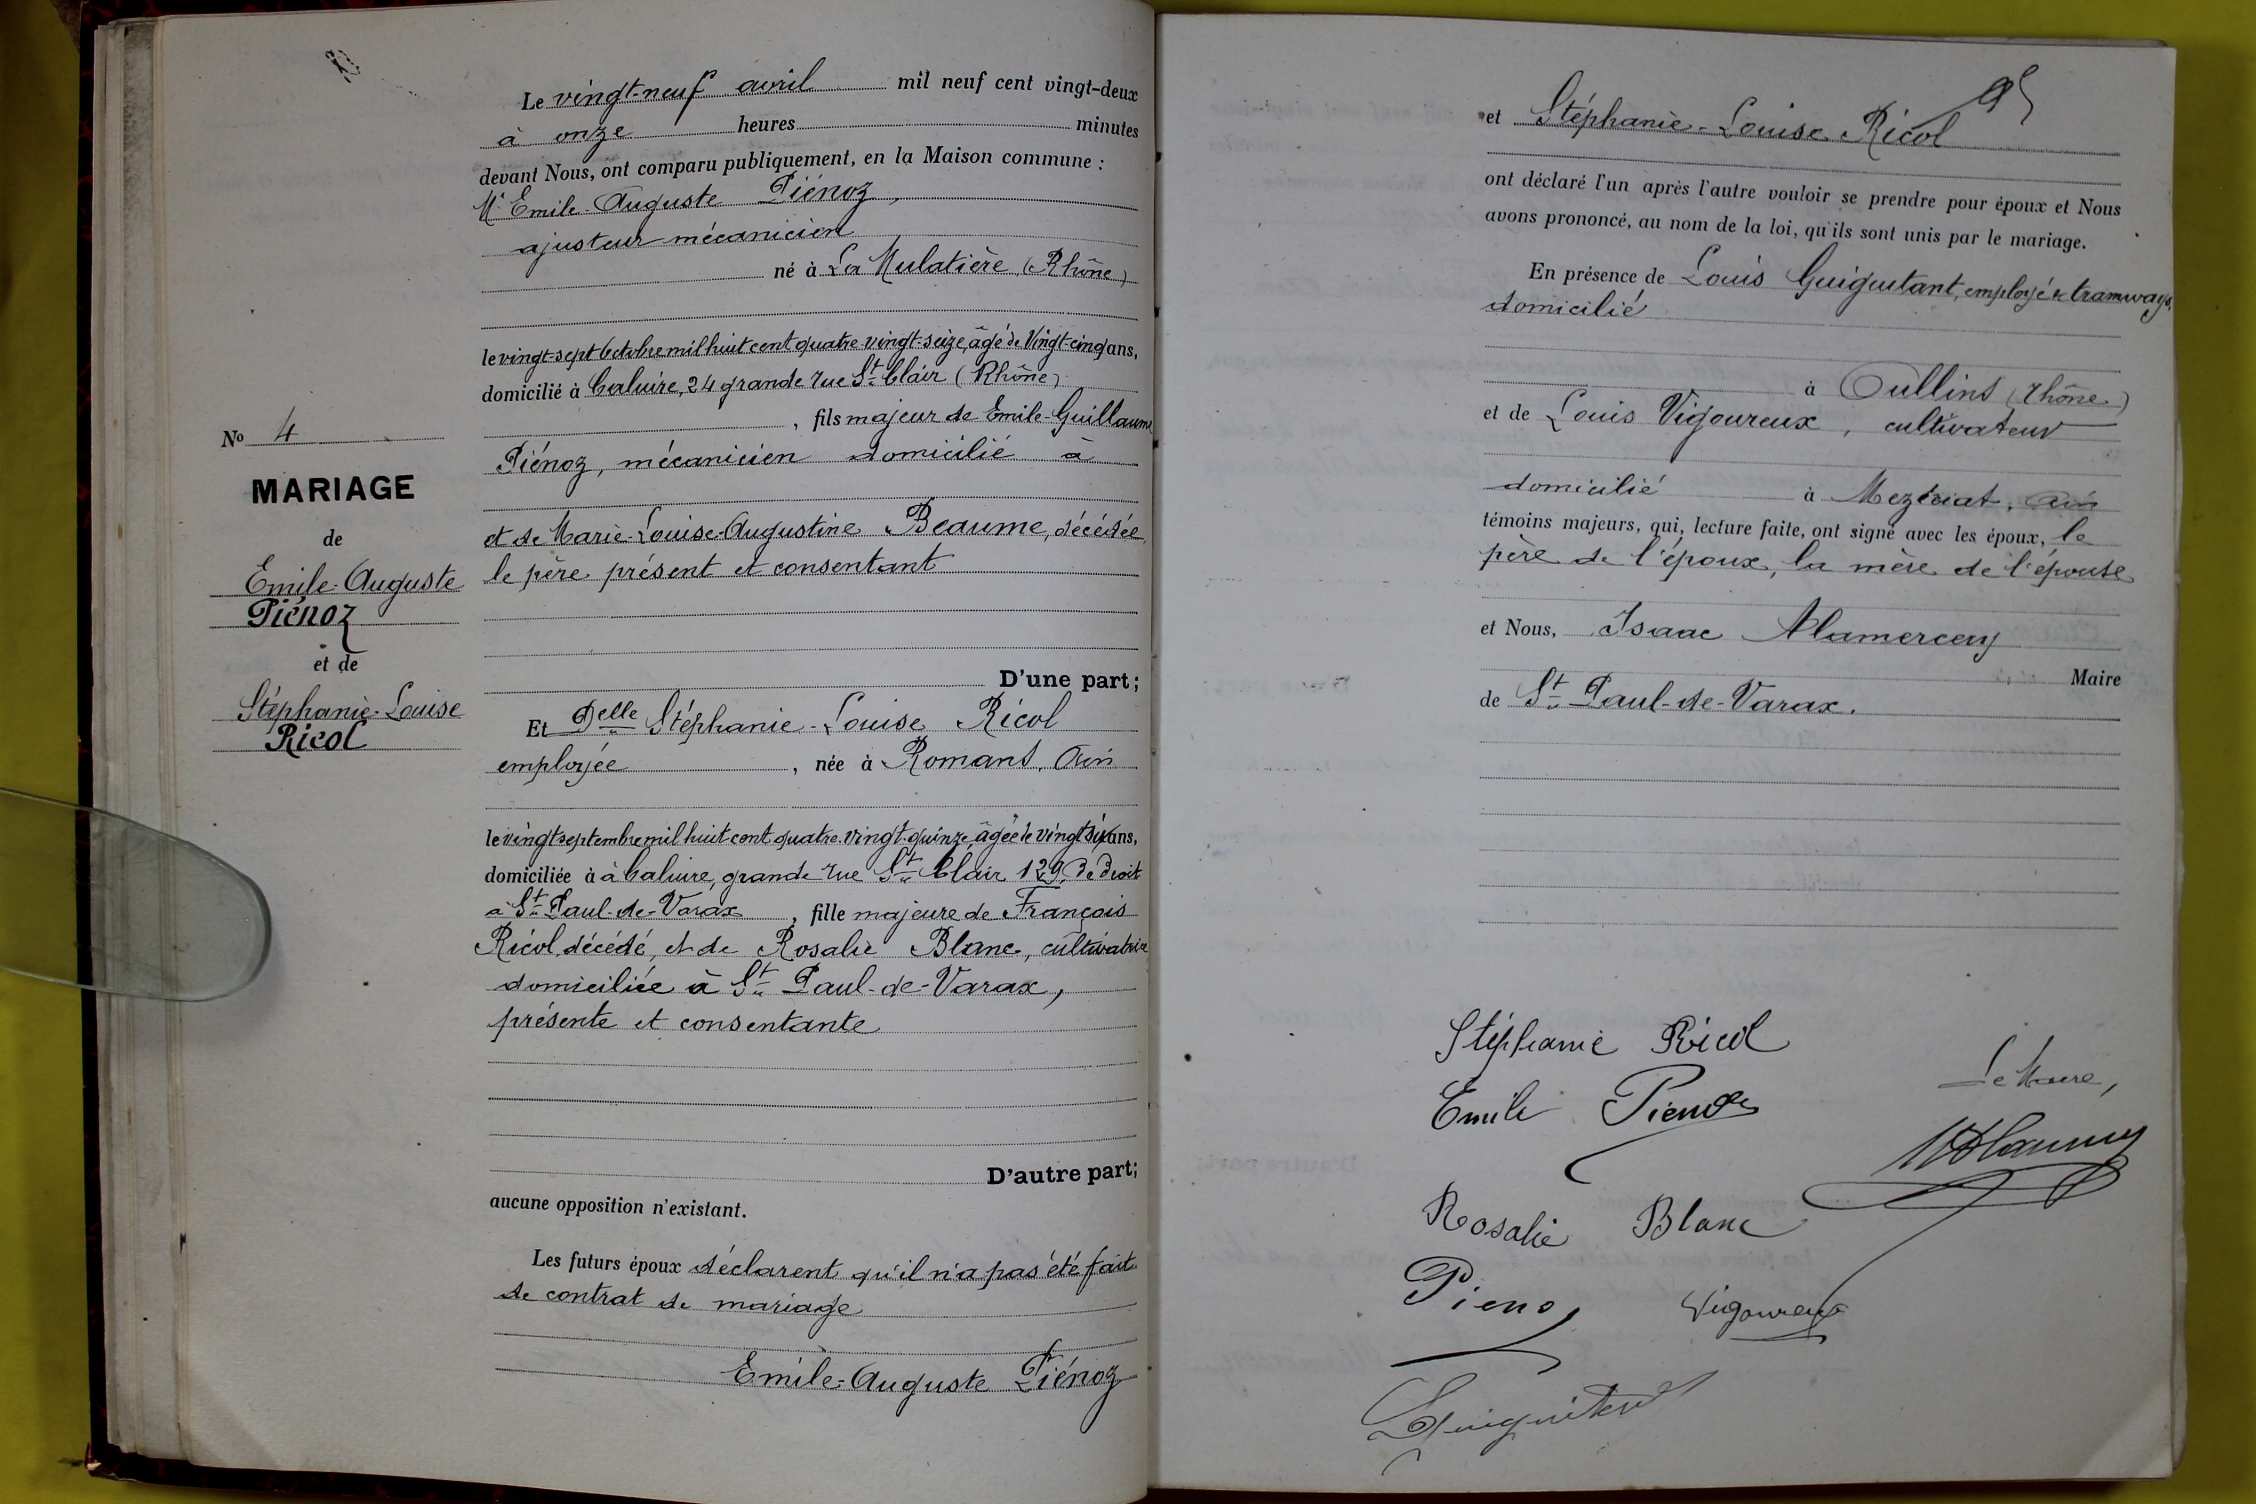 Le vingt-neuf avril mil neuf cent vingt-deux
à onze heures minutes
devant Nous, ont comparu publiquement, en la Maison commune :
Mr Emile-Auguste Piénoz,
ajusteur mécanicien
né à La Mulatière (Rhône)
le vingt-sept Octobre mil huit cent quatre-vingt-seize, âgé de Vingt-cinq ans,
domicilié à Caluire, 24 grande rue St Clair (Rhône)
, fils majeur de Emile-Guillaume
Piénoz, mécanicien domicilié à
et de Marie-Louise-Augustine Beaume, décédée,
le père présent et consentant
D'une part;
Et Delle Stéphanie-Louise Ricol
employée , née à Romans, Ain
le vingt septembre mil huit cent quatre-vingt-quinze, âgée de vingt six ans,
domiciliée à à Caluire, grande rue St Clair 129, de droit
à St Paul-de-Varax , fille majeure de François
Ricol, décédé, et de Rosalie Blanc, cultivatrice
domiciliée à St Paul-de-Varax,
présente et consentante
D'autre part;
aucune opposition n'existant.
Les futurs époux déclarent qu'il n'a pas été fait
de contrat de mariage
Emile-Auguste Piénoz
No 4
MARIAGE
de
Emile-Auguste
Piénoz
et de
Stéphanie-Louise
Ricol
et Stéphanie-Louise Ricol
ont déclaré l'un après l'autre vouloir se prendre pour époux et Nous
avons prononcé, au nom de la loi, qu'ils sont unis par le mariage.
En présence de Louis Guiguitant, employé de tramways,
domicilié
à Oullins (Rhône)
et de Louis Vigoureux, cultivateur
domicilié à Mezériat, Ain
témoins majeurs, qui, lecture faite, ont signé avec les époux, le
père de l'époux, la mère de l'épouse
et Nous, Isaac Alamercery
Maire
de St Paul-de-Varax.
Stéphanie Ricol
Emile Pienoz
Le Maire,
Rosalie Blanc
Pienoz
Vigoureux
Guiguitant